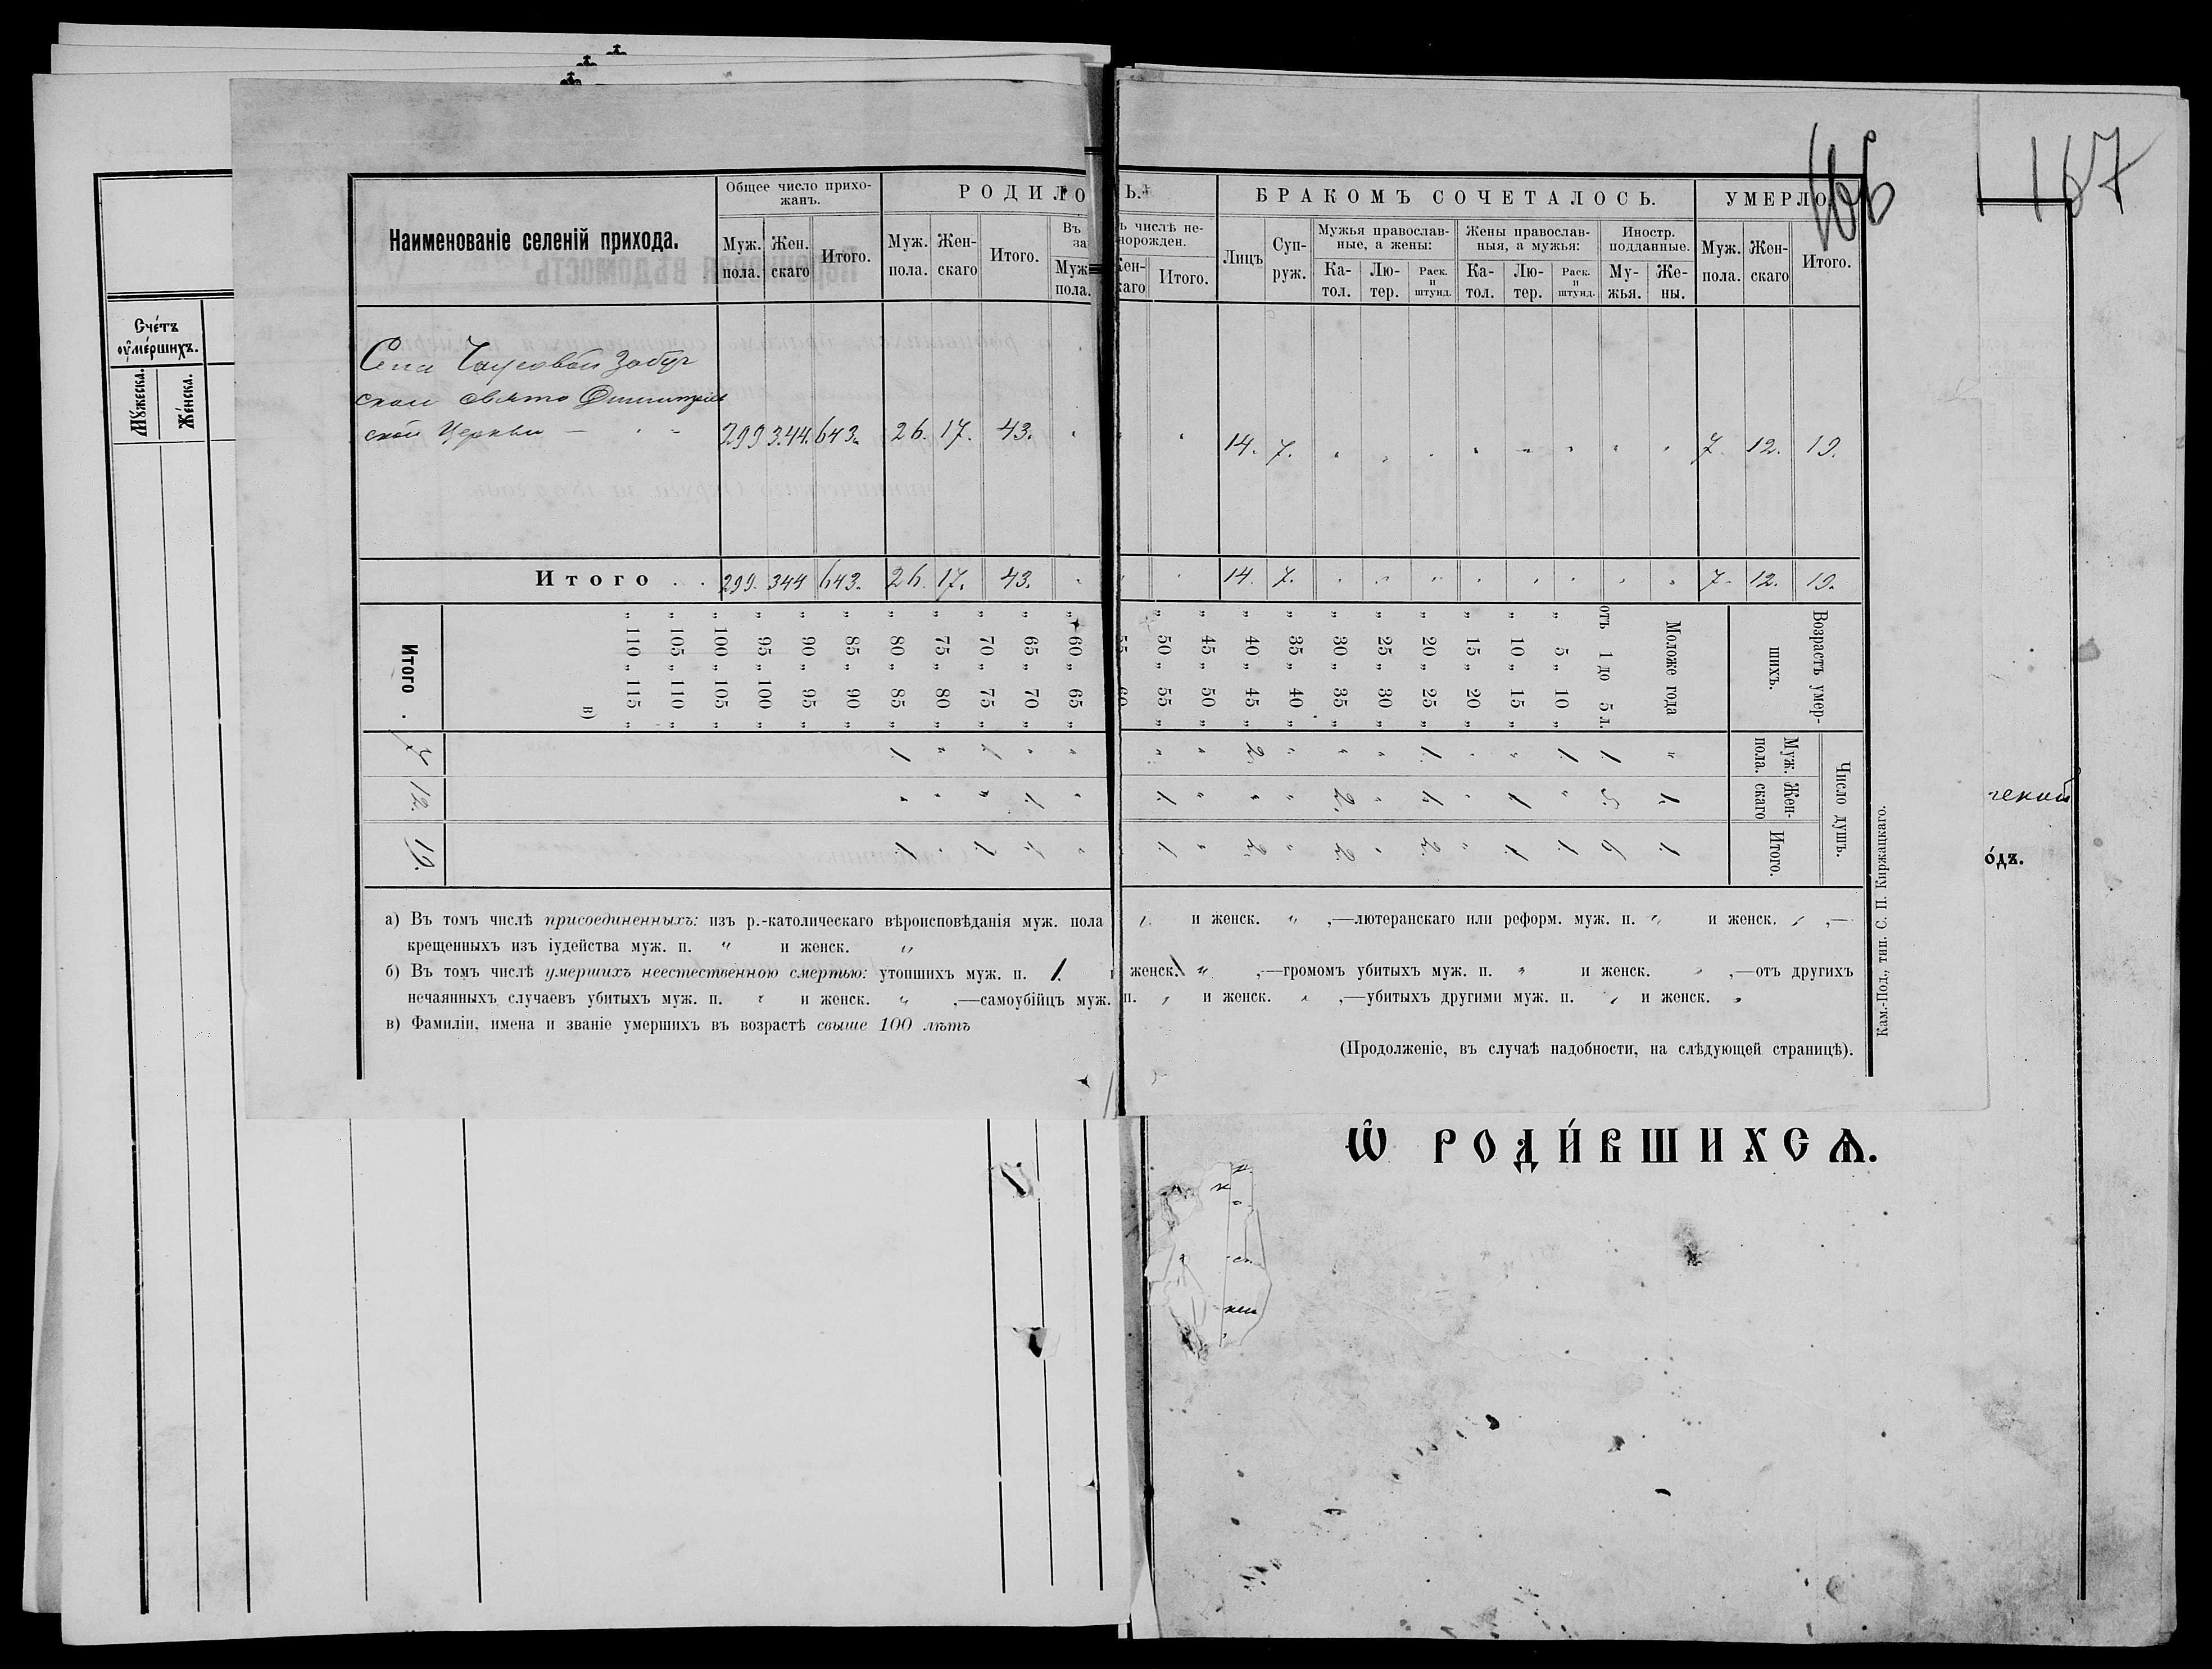 166
167
Счéтъ
оумéршихъ.
Мꙋ́жеска.
Жéнска.
Наименованіе селеній прихода.
Общее число прихо-
жанъ.
Муж.
пола.
Жен.
скаго
Итого.
РОДИЛО
Ь.
Муж.
пола.
Жен-
скаго
Итого.
Въ
за
Муж
пола.
ь числѣ не-
норожден.
Кен-
каго
Итого.
БРАКОМЪ СОЧЕТАЛОСЬ.
Лицъ
Суп-
руж.
Мужья православ-
ные, а жены:
Ка-
тол.
Лю-
тер.
Раск.
и
штунд.
Жены православ-
ныя, а мужья:
Ка-
тол.
Лю-
тер.
Раск.
и
штунд.
Иностр.
подданные.
Му-
жья.
Же-
ны.
УМЕРЛО
Муж.
пола.
Жен-
скаго
Итого.
Села
свято
ской Церкви 299 344. 643. 26. 17. 43. 14. 7. 7. 12. 19.
Итого . . 299. 344 643. 26. 17. 43. 14. 7. 7. 12. 19.
Возрастъ умер-
шихъ.
Число душъ.
Муж.
пола.
Жен-
скаго
Итого.
Моложе года „ 1. 1.
отъ 1 до 5 л. 1. 5. 6
„ 5 „ 10 „ 1. „ 1.
„ 10 „ 15 „ „ 1. 1.
„ 15 „ 20 „
„ 20 „ 25 „ 1. 1. 2.
„ 25 „ 30 „
„ 30 „ 35 „ „ 2. 2.
„ 35 „ 40 „
„ 40 „ 45 „ 2. „ 2.
„ 45 „ 50 „
„ 50 „ 55 „ „ 1. 1.
55 60
„ 60 „ 65 „
„ 65 „ 70 „ „ 1. 1.
„ 70 „ 75 „ 1. „ 1.
„ 75 „ 80 „
„ 80 „ 85 „ 1. „ 1.
„ 85 „ 90 „
„ 90 „ 95 „
„ 95 „ 100 „
„ 100 „ 105 „
„ 105 „ 110 „
„ 110 „ 115 „
в)
Итого . 7 12. 19.
а) Въ томъ числѣ присоединенныхъ: изъ р.-католическаго вѣроисповѣданія муж. пола „ и женск. „ ,—лютеранскаго или реформ. муж. п. „ и женск. „ ,—
крещенныхъ изъ іудейства муж. п. „ и женск. „
б) Въ томъ числѣ умершихъ неестественною смертью: утопшихъ муж. п. 1. и женск. „ ,—громомъ убитыхъ муж. п. „ и женск. „ ,—отъ другихъ
нечаянныхъ случаевъ убитыхъ муж. п. „ и женск. „ ,—самоубійцъ муж. п. „ и женск. „ ,—убитыхъ другими муж. п. „ и женск. „
в) Фамиліи, имена и званіе умершихъ въ возрастѣ свыше 100 лѣтъ
(Продолженіе, въ случаѣ надобности, на слѣдующей страницѣ).
Кам.-Под., тип. С. П. Киржацкаго.
óдъ.
Ѡ РОДИ́ВШИХСѦ.